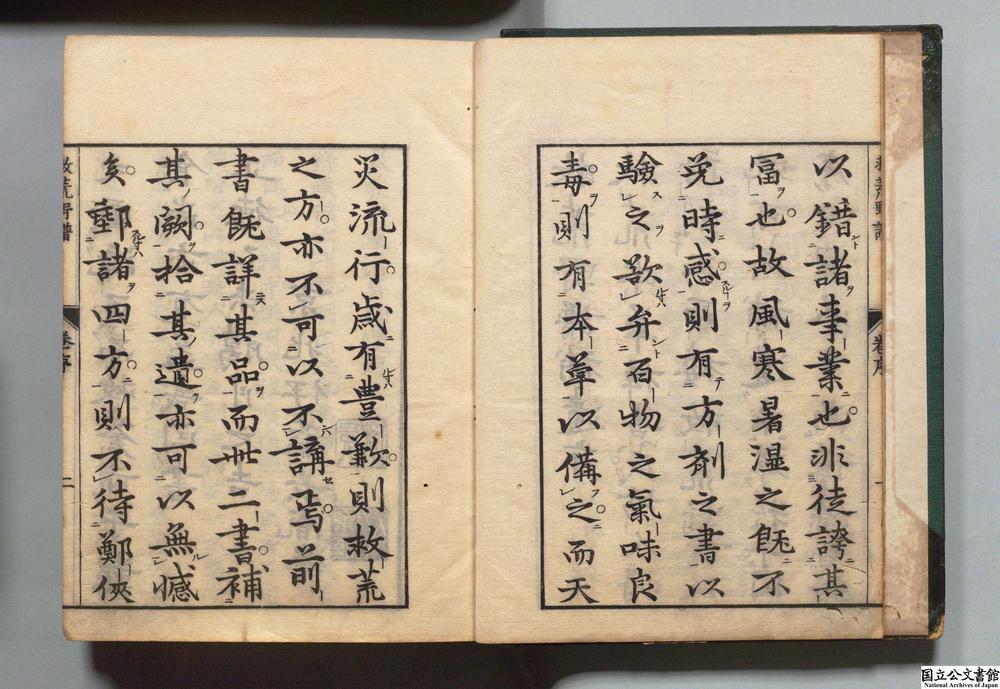 以錯諸事業也非徒誇其
冨也故風寒暑湿之旣不
免時感則有方剤之書以
驗之欲弁百物之氣味良
毒則有本草以備之而天
災流行歳有豊歉則救荒
之方亦不可以不講焉前
書旣詳其品而此二書補
其闕拾其遺亦可以無憾
矣郵諸四方則不待鄭俠
救荒野譜
卷序
国立公文書館
National Archives of Japan